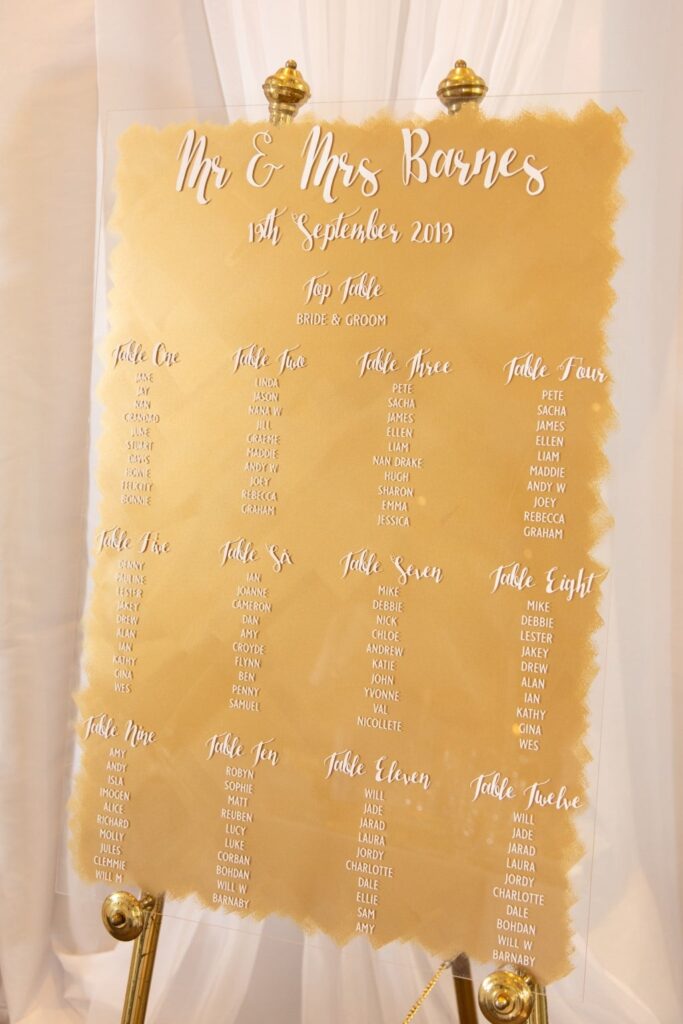 Mr & Mrs Barnes
19th September 2019
Top Table
BRIDE & GROOM
Table One
JANE
JAY
NAN
GRANDAD
JUNE
STUART
HOWIE
FELICITY
BONNIE
Table Two
LINDA
JASON
NANA W
JILL
GRAEME
MADDIE
ANDY W
JOEY
REBECCA
GRAHAM
Table Three
PETE
SACHA
JAMES
ELLEN
LIAM
NAN DRAKE
HUGH
SHARON
EMMA
JESSICA
Table Four
PETE
SACHA
JAMES
ELLEN
LIAM
MADDIE
ANDY W
JOEY
REBECCA
GRAHAM
Table Five
DENNY
PAULINE
LESTER
JAKEY
DREW
ALAN
IAN
KATHY
GINA
WES
Table Six
IAN
JOANNE
CAMERON
DAN
AMY
CROYDE
FLYNN
BEN
PENNY
SAMUEL
Table Seven
MIKE
DEBBIE
NICK
CHLOE
ANDREW
KATIE
JOHN
YVONNE
VAL
NICOLLETE
Table Eight
MIKE
DEBBIE
LESTER
JAKEY
DREW
ALAN
IAN
KATHY
GINA
WES
Table Nine
AMY
ANDY
ISLA
IMOGEN
ALICE
RICHARD
MOLLY
JULES
CLEMMIE
WILL M
Table Ten
ROBYN
SOPHIE
MATT
REUBEN
LUCY
LUKE
CORBAN
BOHDAN
WILL W
BARNABY
Table Eleven
WILL
JADE
JARAD
LAURA
JORDY
CHARLOTTE
DALE
ELLIE
SAM
AMY
Table Twelve
WILL
JADE
JARAD
LAURA
JORDY
CHARLOTTE
DALE
BOHDAN
WILL W
BARNABY